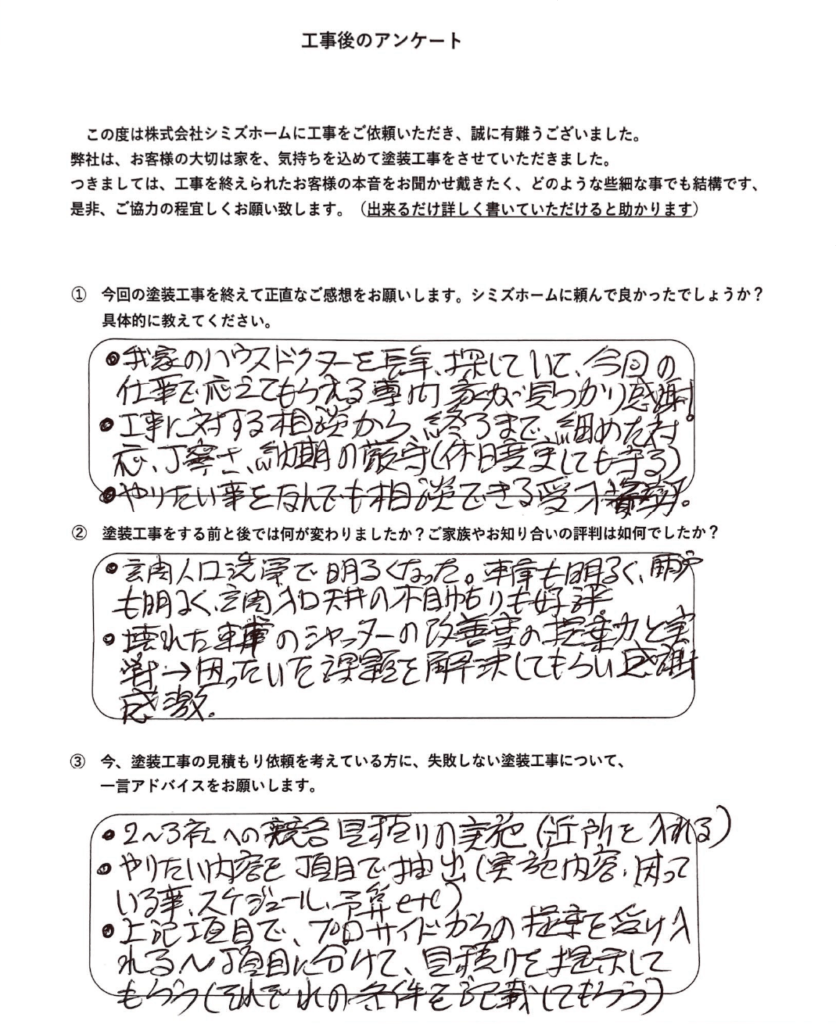 工事後のアンケート
この度は株式会社シミズホームに工事をご依頼いただき、誠に有難うございました。
弊社は、お客様の大切は家を、気持ちを込めて塗装工事をさせていただきました。
つきましては、工事を終えられたお客様の本音をお聞かせ戴きたく、どのような些細な事でも結構です、
是非、ご協力の程宜しくお願い致します。（出来るだけ詳しく書いていただけると助かります）
① 今回の塗装工事を終えて正直なご感想をお願いします。シミズホームに頼んで良かったでしょうか？
具体的に教えてください。
●我家のハウスドクターを長年、探していて、今回の
仕事で応えてもらえる専門家が見つかり感謝!
●工事に対する相談から、終るまで、細めた対
応、丁寧さ、納期の厳守(休日度までしても守る)
●やりたい事をなんでも相談できる受入
② 塗装工事をする前と後では何が変わりましたか？ご家族やお知り合いの評判は如何でしたか？
●玄関入口洗浄で明るくなった。車庫も明るく、雨戸
も明るく、玄関入口天井の木目ぬりも好評
●壊れた車庫のシャッターの改善案の提案力と実
→困っていた課題を解決してもらい感謝
感激。
③ 今、塗装工事の見積もり依頼を考えている方に、失敗しない塗装工事について、
一言アドバイスをお願いします。
●2〜3社への競合見積りの実施(近所を入れる)
●やりたい内容を項目で抽出(実施内容、困って
いる事、スケジュール、予算etc)
●上記項目で、プロサイドからの提案を受け入
れる〜項目に分けて、見積りを提示して
もらう(それぞれの条件を記載してもらう)